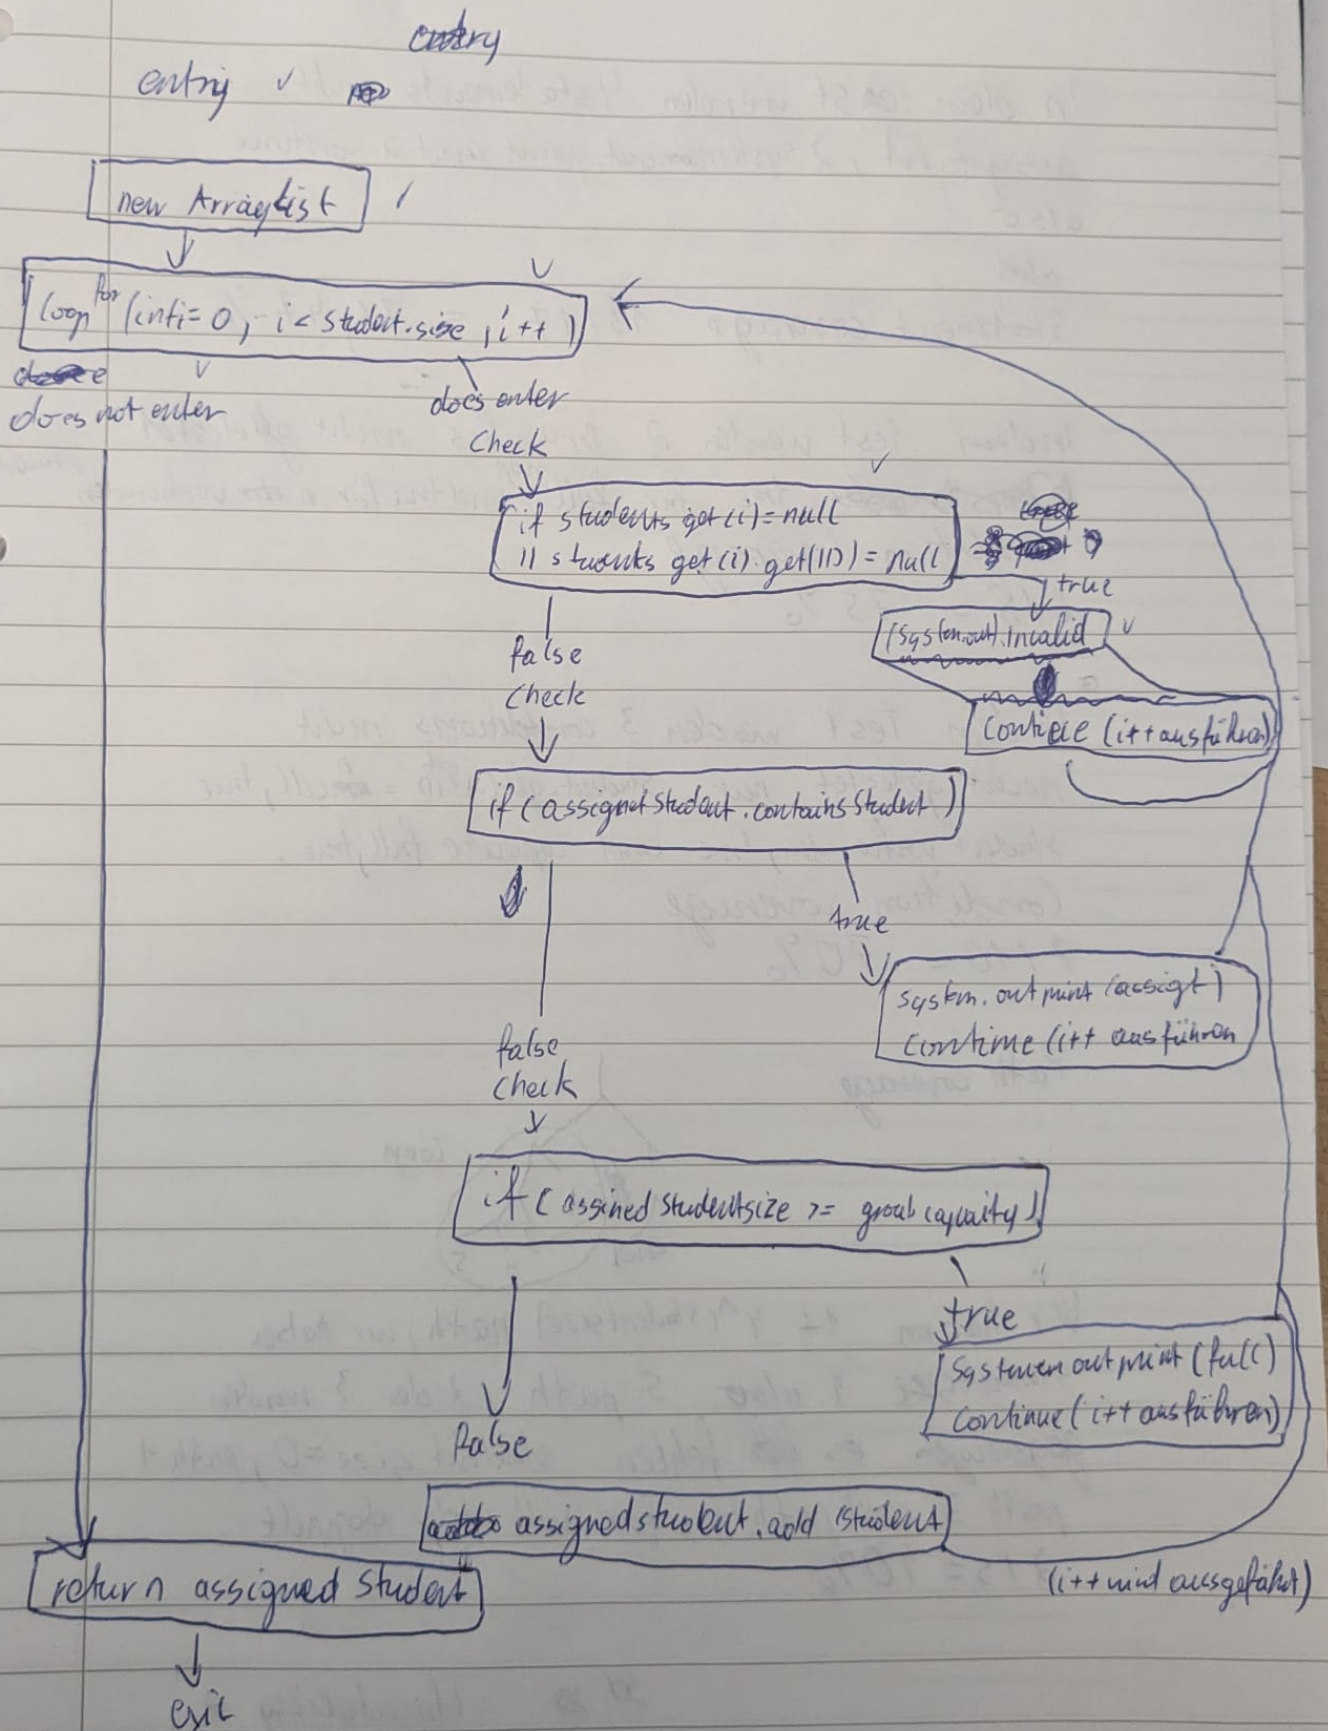 entry
entry
new ArrayList
loop for (int i = 0, i < student.size, i++)
does not enter
does enter
Check
if students get(i) = null
|| stwents get(i).get(ID) = null
true
(System.out).incalid
false
Check
(i++ ausführen)
if (assignet student.contains Student)
true
System.out print (assigt)
Continue (i++ ausführen
false
Check
if (assined studentsize >= groub capacity)
true
out print (full)
Continue (i++ ausführen)
false
assigned student.add (student)
(i++ wird ausgeführt)
return assigned student
exit